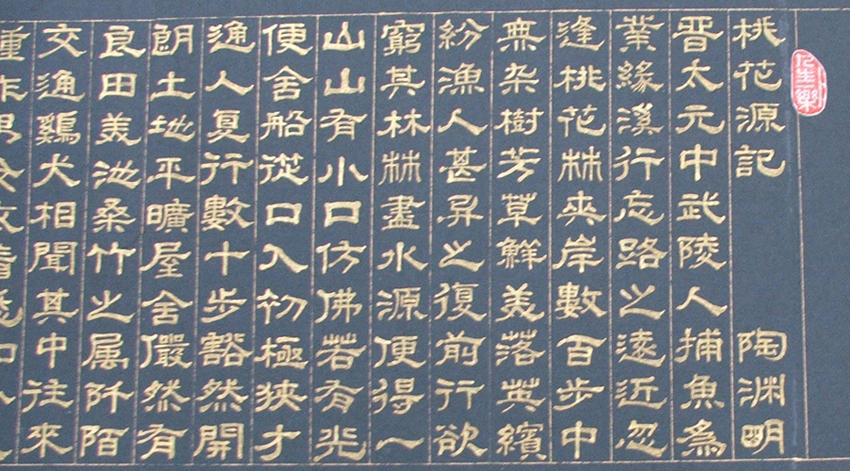 人生一樂
桃花源記 陶淵明
晋太元中武陵人捕魚為
業緣溪行忘路之遠近忽
逢桃花林夾岸數百步中
無杂樹芳草鮮美落英繽
紛漁人甚异之復前行欲
窮其林林盡水源便得一
山山有小口仿佛若有光
便舍船從口入初極狹才
通人复行數十步豁然開
朗土地平曠屋舍儼然有
良田美池桑竹之属阡陌
交通鷄犬相聞其中往來